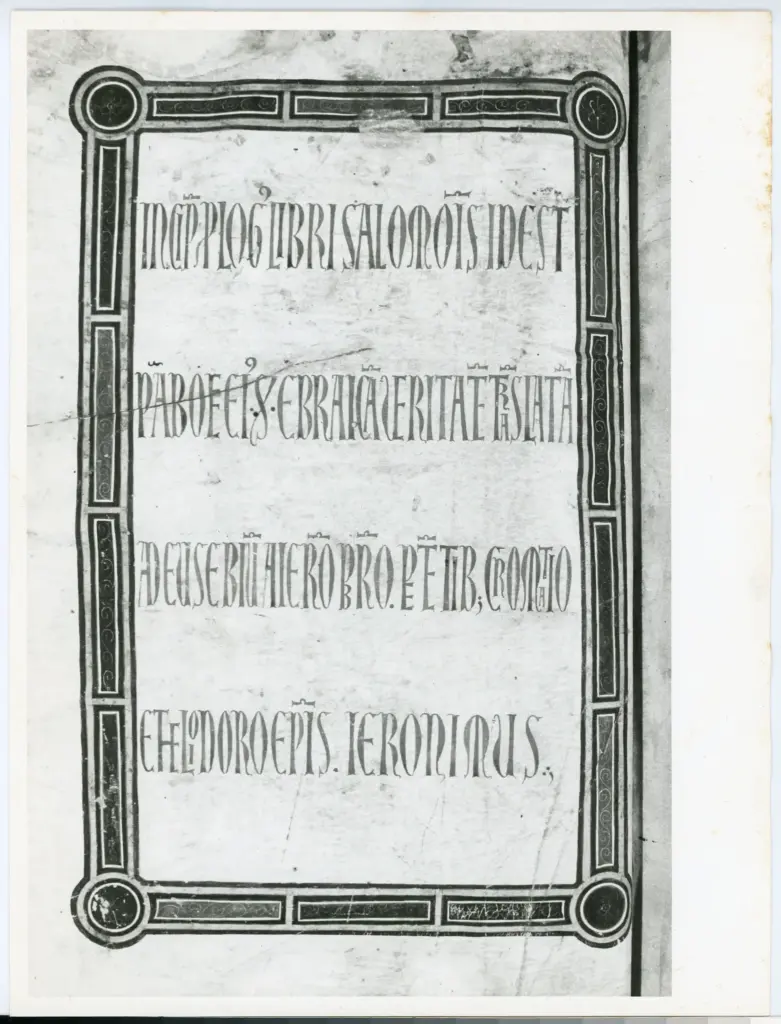 INCIP PLOGꝰ LIBRI SALOMOIS IDEST
PABOLE EIꝰ EBRAICA VERITATE TRASLATA
AD EUSEBIU A IERO PBRO. PETIT B; CROMATIO
ET ELIODORO EPIS. IERONIMUS.,